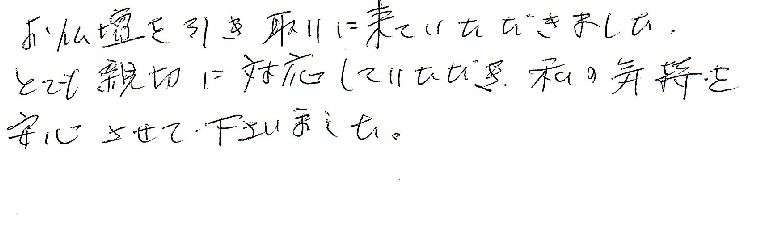 お仏壇を引き取りに来ていただきました.
とても親切に対応していただき、私の気持を
安心させて下さいました。